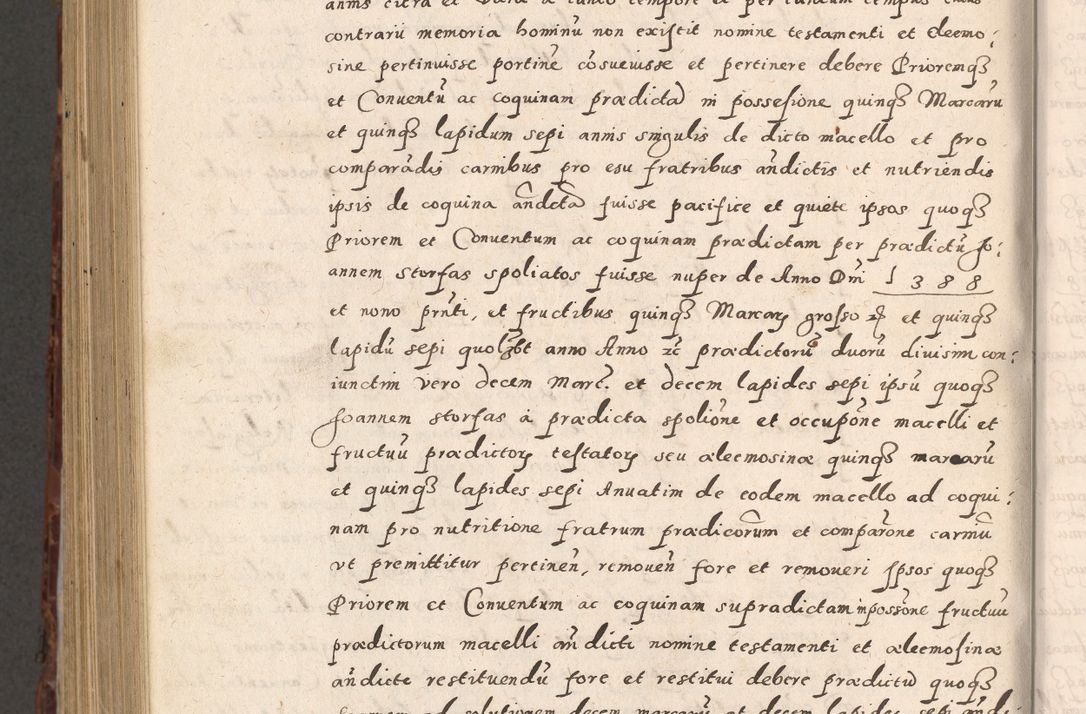 annis citra et
contrarÿ memoria hominū non existit nomine testamenti et Eleemo:
sine pertinuisse portinē cōsueuisse et pertinere debere Prioremqȝ
et Conuentū ac coquinam prædictā in possesione quinqȝ Marcarū
et quinqȝ lapidum sepi annis singulis de dicto macello et pro
comparādis carnibus pro esu fratribus an̄dictis et nutriendis
ipsis de coquina an̄dcta fuisse pacifice et quiete ipsos quoqȝ
Priorem et Conuentum ac coquinam prædictam per prædictū Jo:
annem Storfas spoliatos fuisse nuper de Anno Dn̄i 1388
et nono prn̄ti, et fructibus quinqȝ Marcarꝝ grosso ꝝ et quinqȝ
lapidū sepi quolȝbt anno Anno ꝛc̄ prædictorū duorū diuisim con:
iunctim vero decem Marc̄. et decem lapides sepi ipsū quoqȝ
Joannem Storfas à prædicta spoliōne et occupōne macelli et
fructuū prædictorꝝ testatorꝝ seu æleemosinæ quinqȝ marcarū
et quinqȝ lapides sepi Anuatim de eodem macello ad coqui:
nam pro nutritione fratrum prædicorum et comparōne carniū
vt premittitur pertinen̄, remouen̄ fore et remoueri Jpsos quoqȝ
Priorem et Conuentum ac coquinam supradictam in possōne fructuū
prædictorum macelli an̄dicti nomine testamenti et æleemosinæ
an̄dicte restituendū fore et restitui debere prædictū quoqȝ